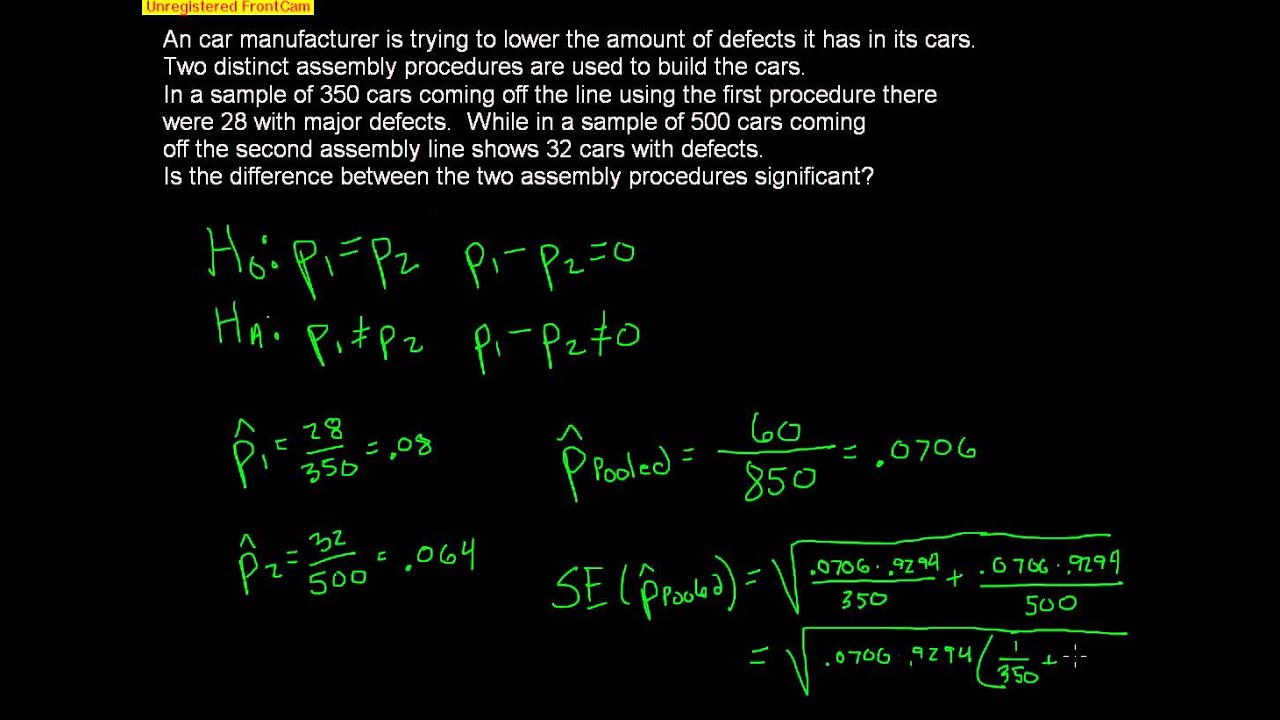 Unregistered FrontCam
An car manufacturer is trying to lower the amount of defects it has in its cars.
Two distinct assembly procedures are used to build the cars.
In a sample of 350 cars coming off the line using the first procedure there
were 28 with major defects.  While in a sample of 500 cars coming
off the second assembly line shows 32 cars with defects.
Is the difference between the two assembly procedures significant?
H₀: p₁=p₂ p₁-p₂=0
H_A: p₁≠p₂ p₁-p₂≠0
p̂₁ = 28/350 = .08
p̂_Pooled = 60/850 = .0706
p̂₂ = 32/500 = .064
SE(p̂_Pooled) = √(.0706·.9294/350 + .0706·.9294/500)
= √(.0706 .9294(1/350 +